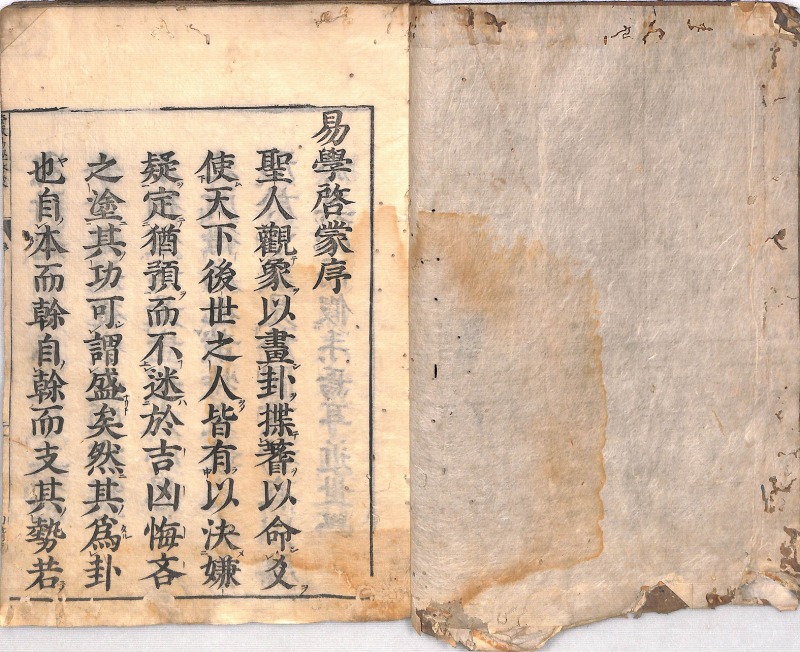 易學啓蒙序
聖人觀象以畫卦揲蓍以命爻
使天下後世之人皆有以決嫌
疑定猶預而不迷於吉凶悔吝
之塗其功可謂盛矣然其爲卦
也自本而榦自榦而支其勢若